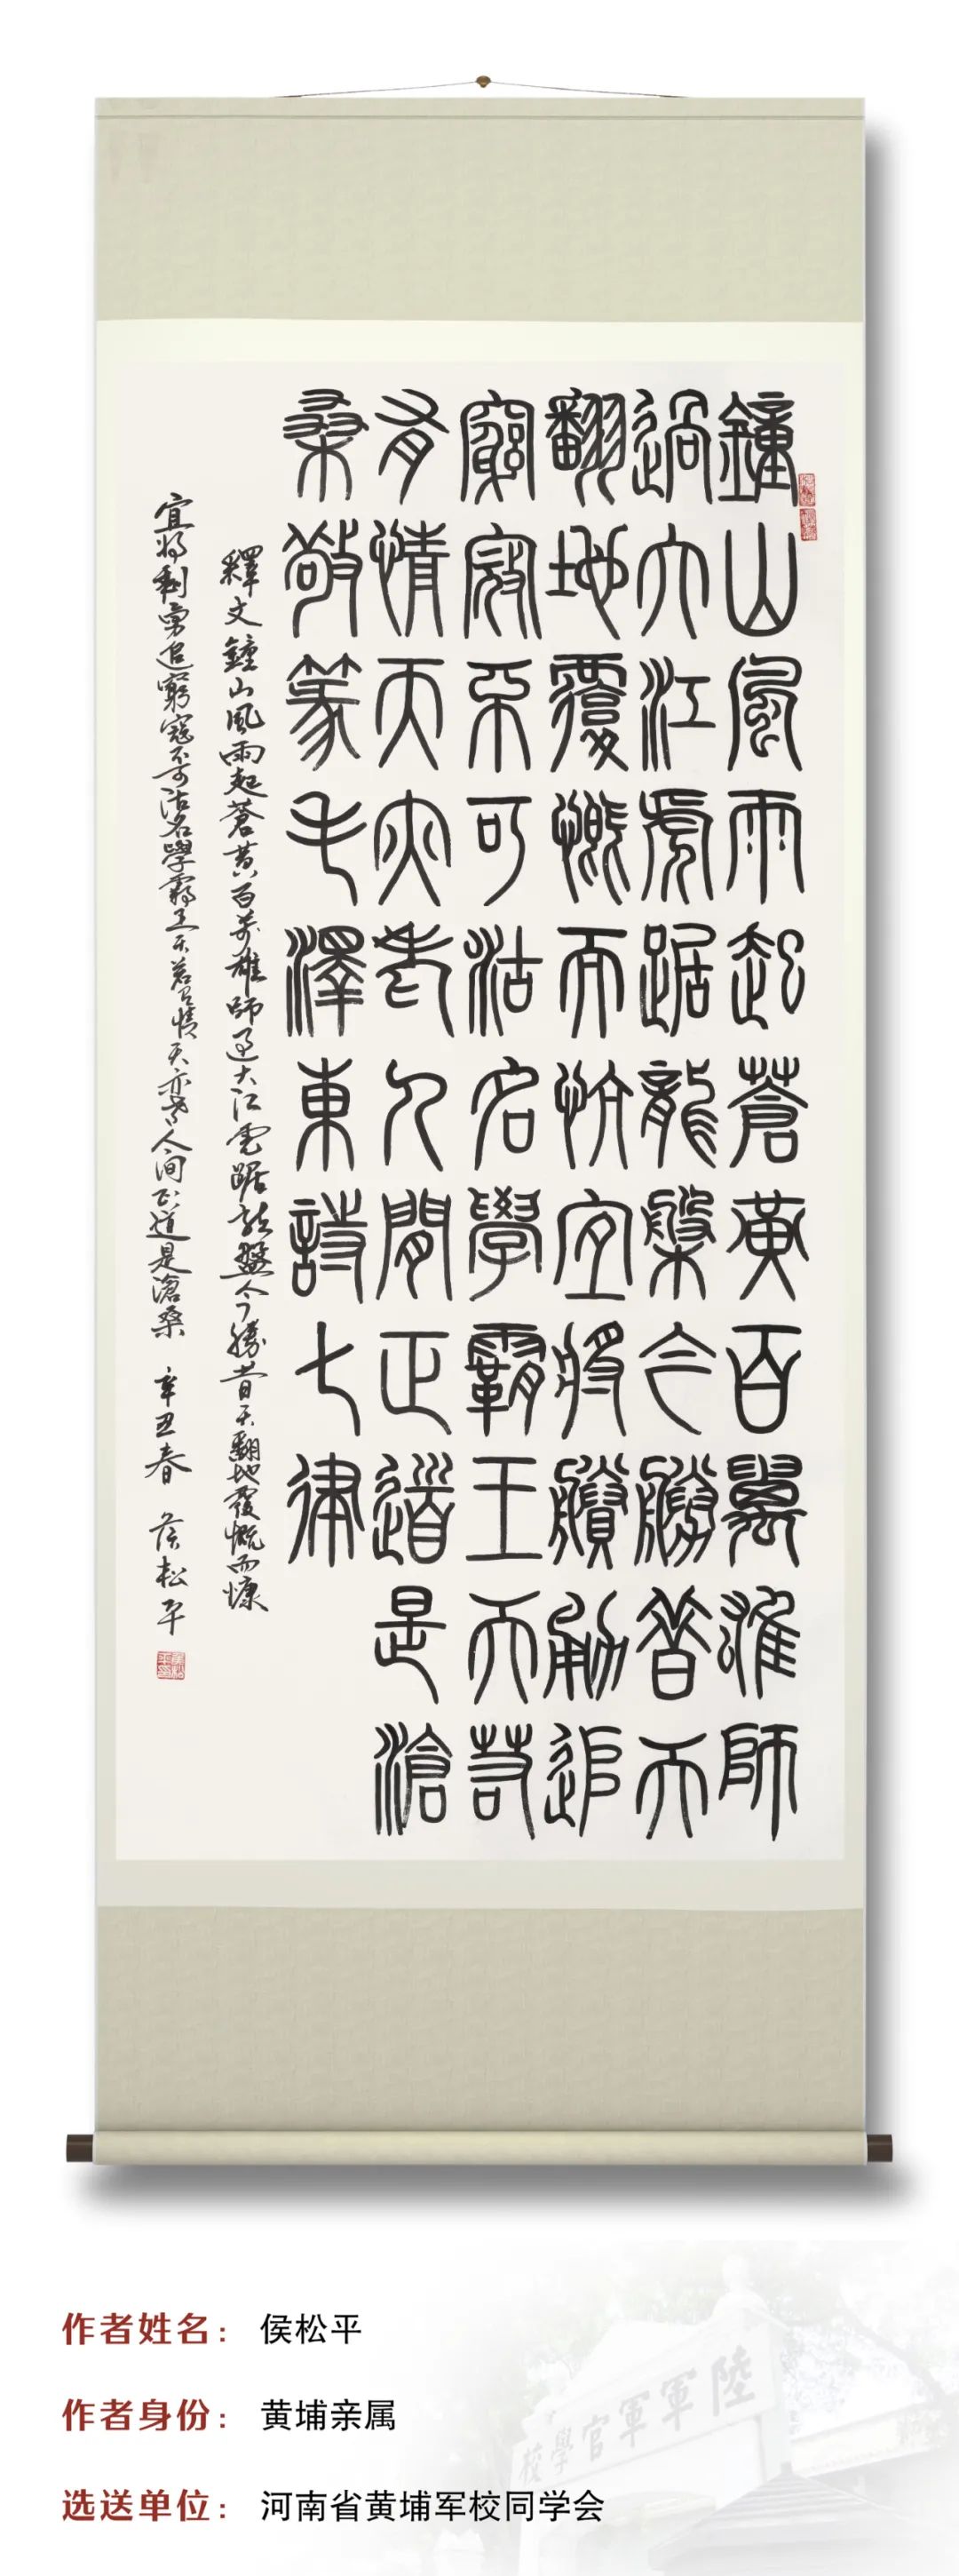 鐘山風雨起蒼黃百萬雄師
過大江虎踞龍槃今勝昔天
翻地覆慨而忼宜將賸勇追
窮寇不可沽名學霸王天若
有情天亦老人間正道是滄
桑敬篆毛澤東詩七律
釋文鐘山風雨起蒼黃百萬雄師過大江虎踞龍盤今勝昔天翻地覆慨而慷
宜將剩勇追窮寇不可沽名學霸王天若有情天亦老人间正道是滄桑 辛丑春 侯松平
作者姓名： 侯松平
作者身份： 黄埔亲属
选送单位： 河南省黄埔军校同学会
陸軍軍官學校